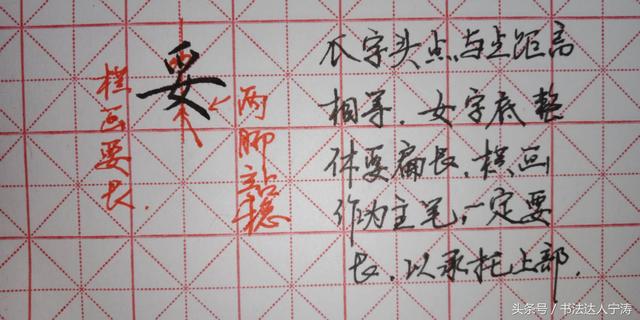 横画要长.
妥
两脚站稳
爪字头点与点距离
相等.女字底整
体要扁长,横画
作为主笔,一定要
长.以承托上部.
头条号 / 书法达人宁涛